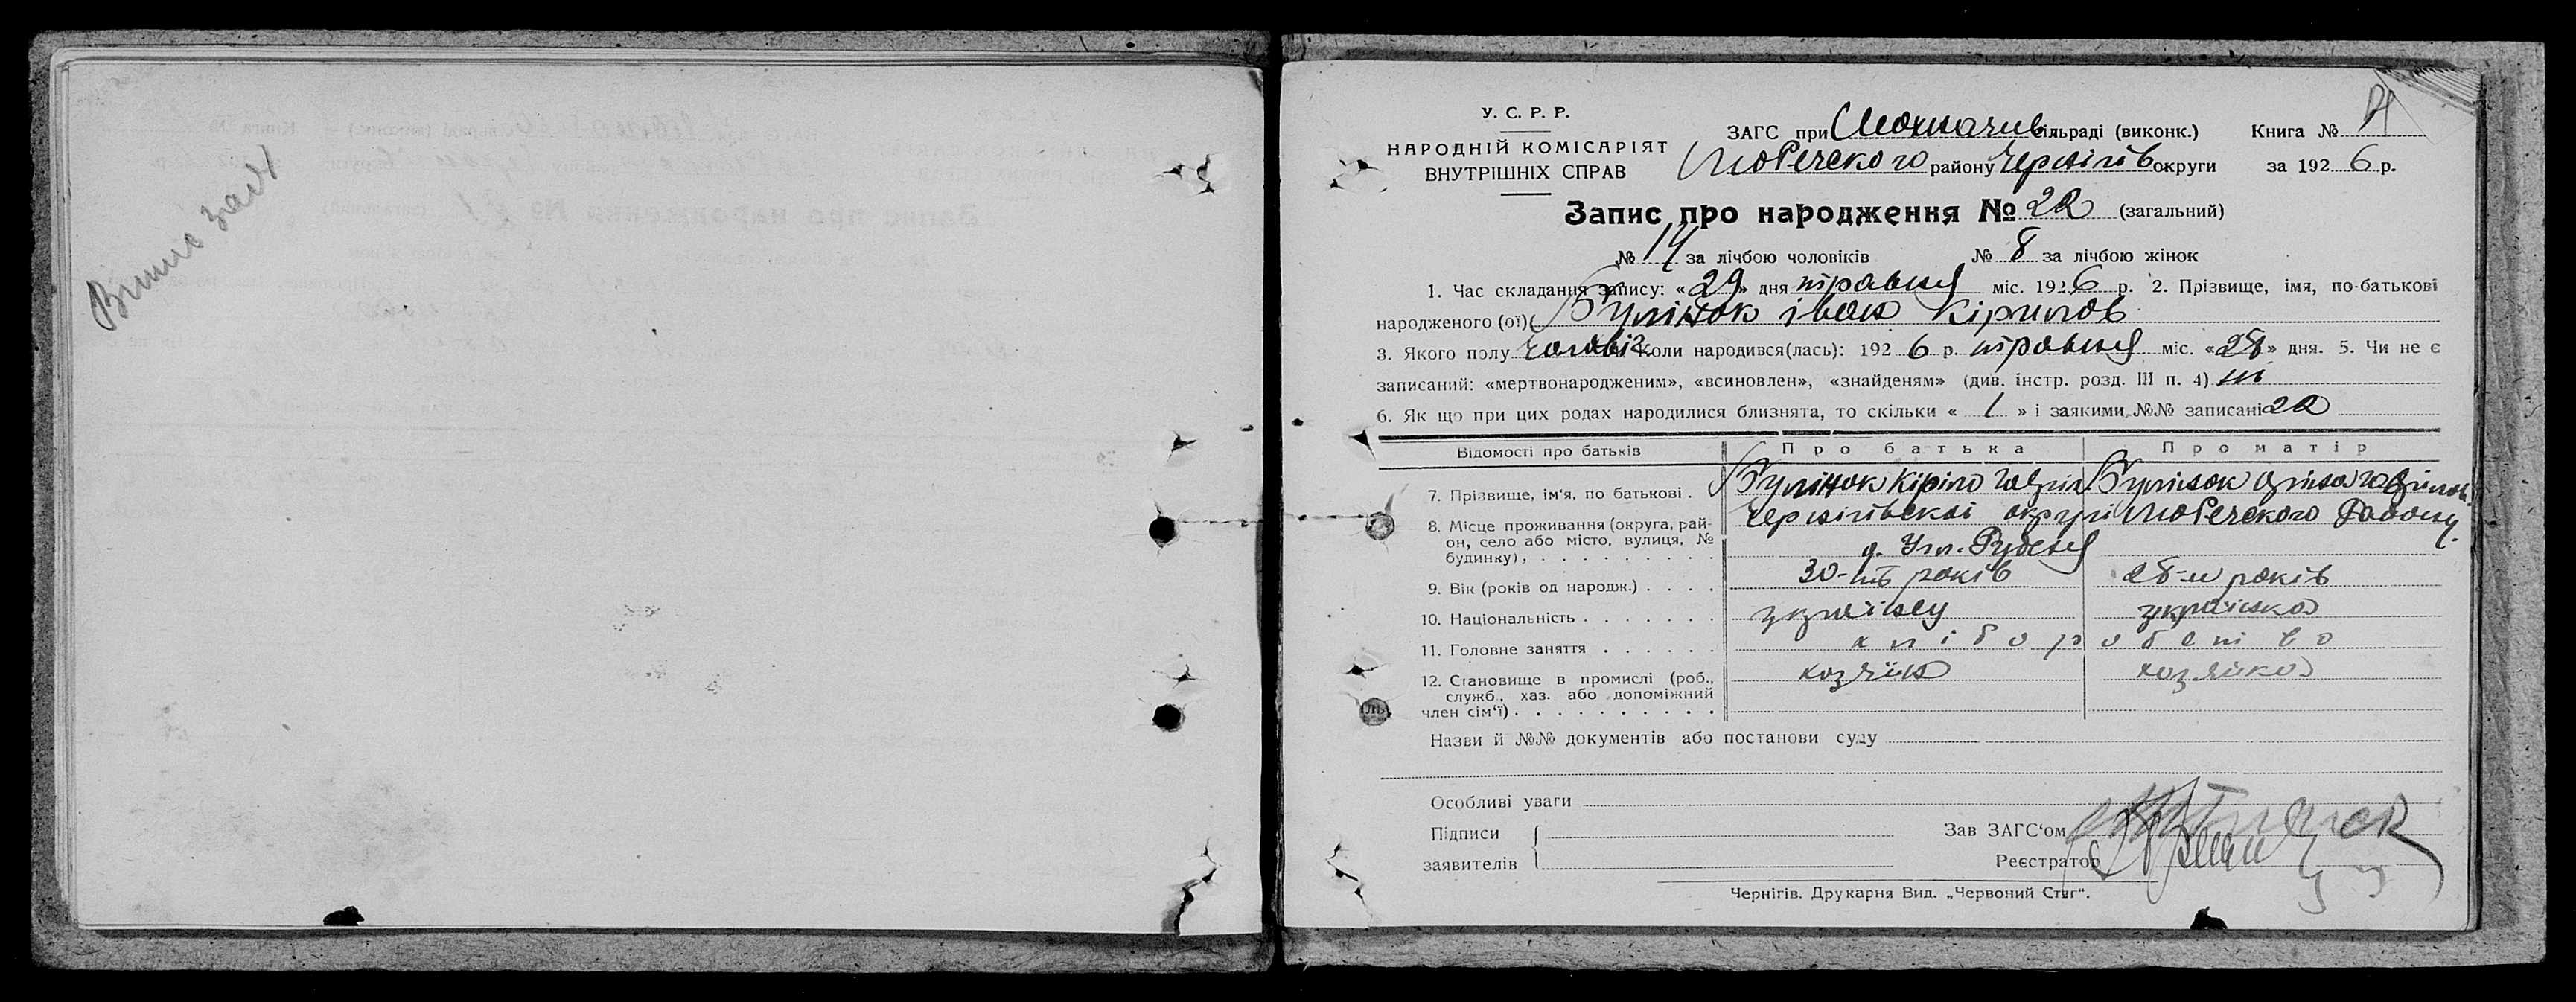 У. С. Р. Р.
НАРОДНІЙ КОМІСАРІЯТ
ВНУТРІШНІХ СПРАВ
ЗАГС при сільраді (виконк.) Книга №
Любечского району Чернігів округи за 1926 р.
Запис про народження № 22 (загальний)
№ 14 за лічбою чоловіків № 8 за лічбою жінок
1. Час складання запису: «29» дня травня міс. 1926 р. 2. Прізвище, імя, по-батькові
народженого (ої) Булінок іван Кірилов
3. Якого полу чоловіч. Коли народився(лась): 1926 р. травня міс. «28» дня. 5. Чи не є
записаний: «мертвонародженим», «всиновлен», «знайденям» (див. інстр. розд. III п. 4) ні
6. Як що при цих родах народилися близнята, то скільки « 1 » і заякими №№ записані 22
Відомості про батьків Про батька Про матір
7. Прізвище, ім'я, по батькові . Булінок Кіріло Булінок
8. Місце проживання (округа, рай-
он, село або місто, вулиця, №
будинку), . . . . . . . . . Чернігівскоі округі Любечского Району
д. Ул. Рубеня
9. Вік (років од народж.) . . . . 30-ть років 28-м років
10. Національність . . . . . . . українец українка
11. Головне заняття . . . . . . хліборобство
12. Становище в промислі (роб.,
служб., хаз. або допоміжний
член сім'ї) . . . . . . . . . . хозяїн хозяйка
Назви й №№ документів або постанови суду
Особливі уваги
Підписи
заявителів
Зав ЗАГС'ом
Реєстратор
Чернігів. Друкарня Вид. „Червоний Стяг“.